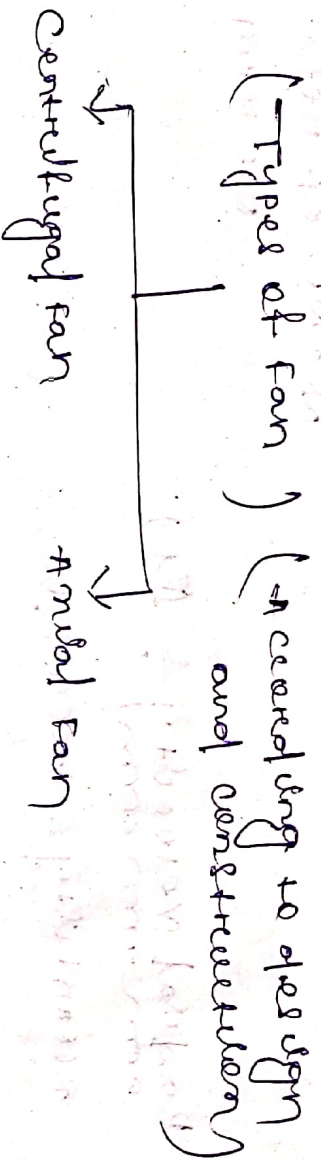 (Types of Fan) (According to design
and construction)
Centrifugal Fan
Axial Fan